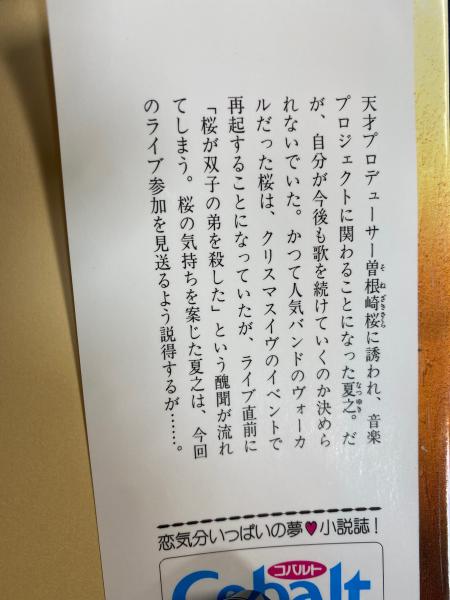 天才プロデューサー曽根崎桜に誘われ、音楽
プロジェクトに関わることになった夏之。だ
が、自分が今後も歌を続けていくのか決めら
れないでいた。かつて人気バンドのヴォーカ
ルだった桜は、クリスマスイヴのイベントで
再起することになっていたが、ライブ直前に
「桜が双子の弟を殺した」という醜聞が流れ
てしまう。桜の気持ちを案じた夏之は、今回
のライブ参加を見送るよう説得するが……。
恋気分いっぱいの夢♥小説誌！
コバルト
Cobalt